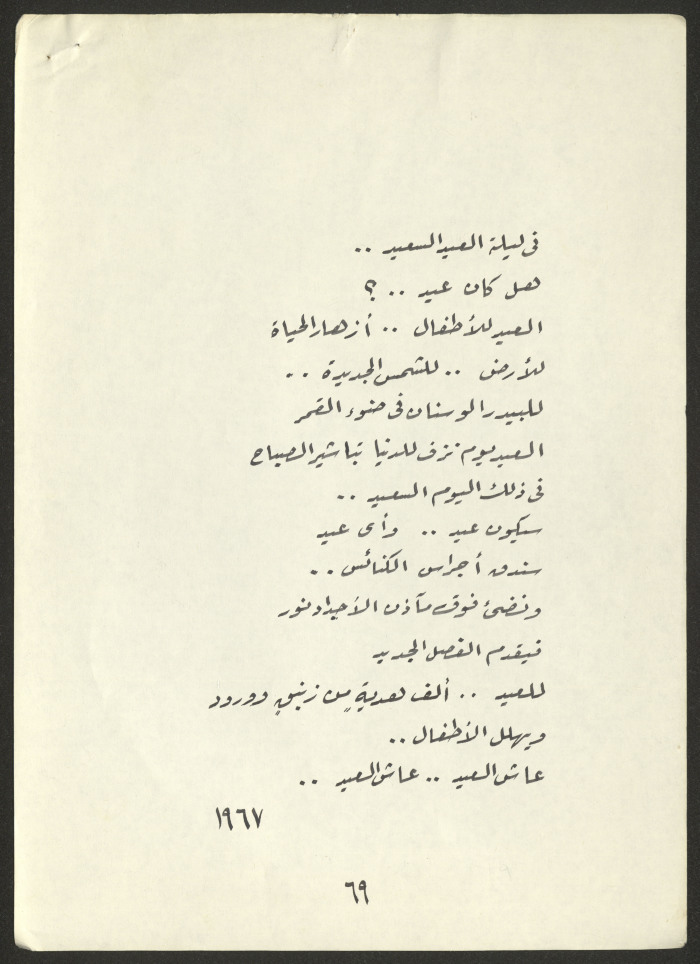 في ليلة العيد السعيد ..
هل كان عيد .. ؟
العيد للأطفال .. أزهار الحياة
للأرض .. للشمس الجديدة ..
للبيدر الوسنان في ضوء القمر
العيد يوم نزف للدنيا تباشير الصباح
في ذلك اليوم السعيد ..
سيكون عيد .. وأي عيد
سندق أجراس الكنائس ..
ونضئ فوق مآذن الأجداد نور
فيقدم الفصل الجديد
للعيد .. ألف هديةٍ من زنبقٍ وورود
ويهلل الأطفال ..
عاش العيد .. عاش العيد ..
١٩٦٧
٦٩